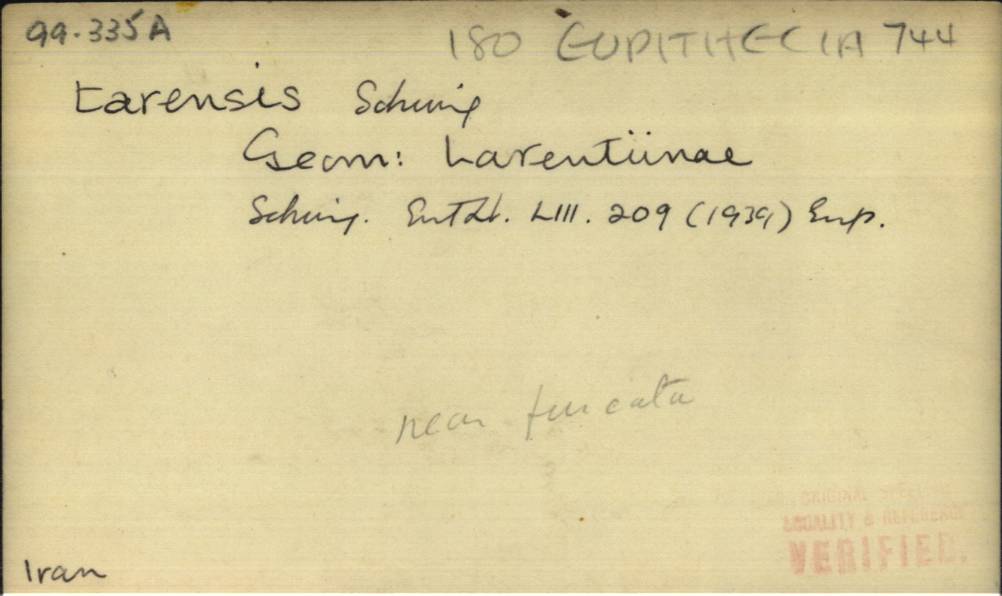 99.335A
180 EUPITHECIA 744
tarensis Schwing
Geom: Larentiinae
Schwing. Ent Zt. LIII. 209 (1939) Eup.
near furcata
ORIGINAL SPELLING
LOCALITY & REFERENCE
VERIFIED.
Iran